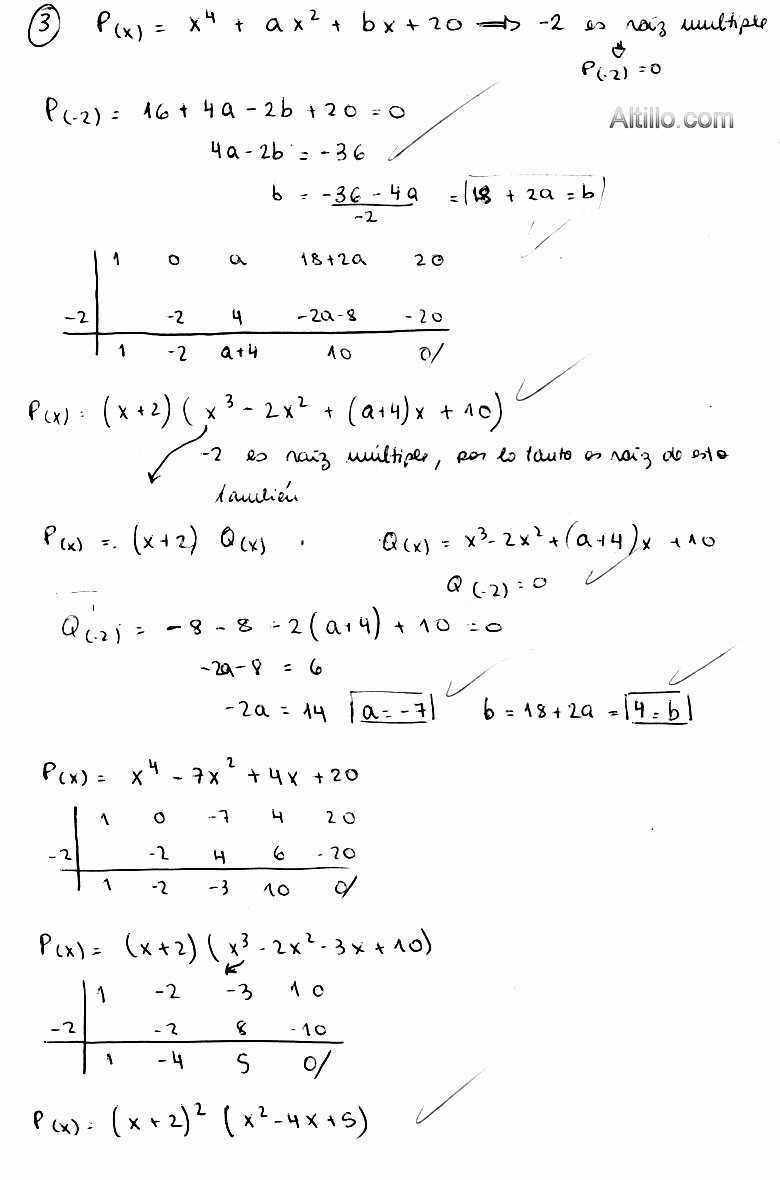 ③ P(x) = x⁴ + ax² + bx + 20 ⟹ -2 es raiz multiple
P(-2) = 0
Altillo.com
P(-2) = 16 + 4a - 2b + 20 = 0
4a - 2b = -36
b = -36 - 4a / -2 = 18 + 2a = b
1 0 a 18+2a 20
-2 -2 4 -2a-8 -20
1 -2 a+4 10 0/
P(x) = (x+2) (x³ - 2x² + (a+4)x + 10)
-2 es raiz múltiple, por lo tanto es raiz de este
también
P(x) = (x+2) Q(x) . Q(x) = x³ - 2x² + (a+4)x + 10
Q(-2) = 0
Q(-2) = -8 - 8 - 2(a+4) + 10 = 0
-2a - 8 = 6
-2a = 14 a = -7 b = 18 + 2a = 4 = b
P(x) = x⁴ - 7x² + 4x + 20
1 0 -7 4 20
-2 -2 4 6 -20
1 -2 -3 10 0/
P(x) = (x+2) (x³ - 2x² - 3x + 10)
1 -2 -3 10
-2 -2 8 -10
1 -4 5 0/
P(x) = (x+2)² (x² - 4x + 5)